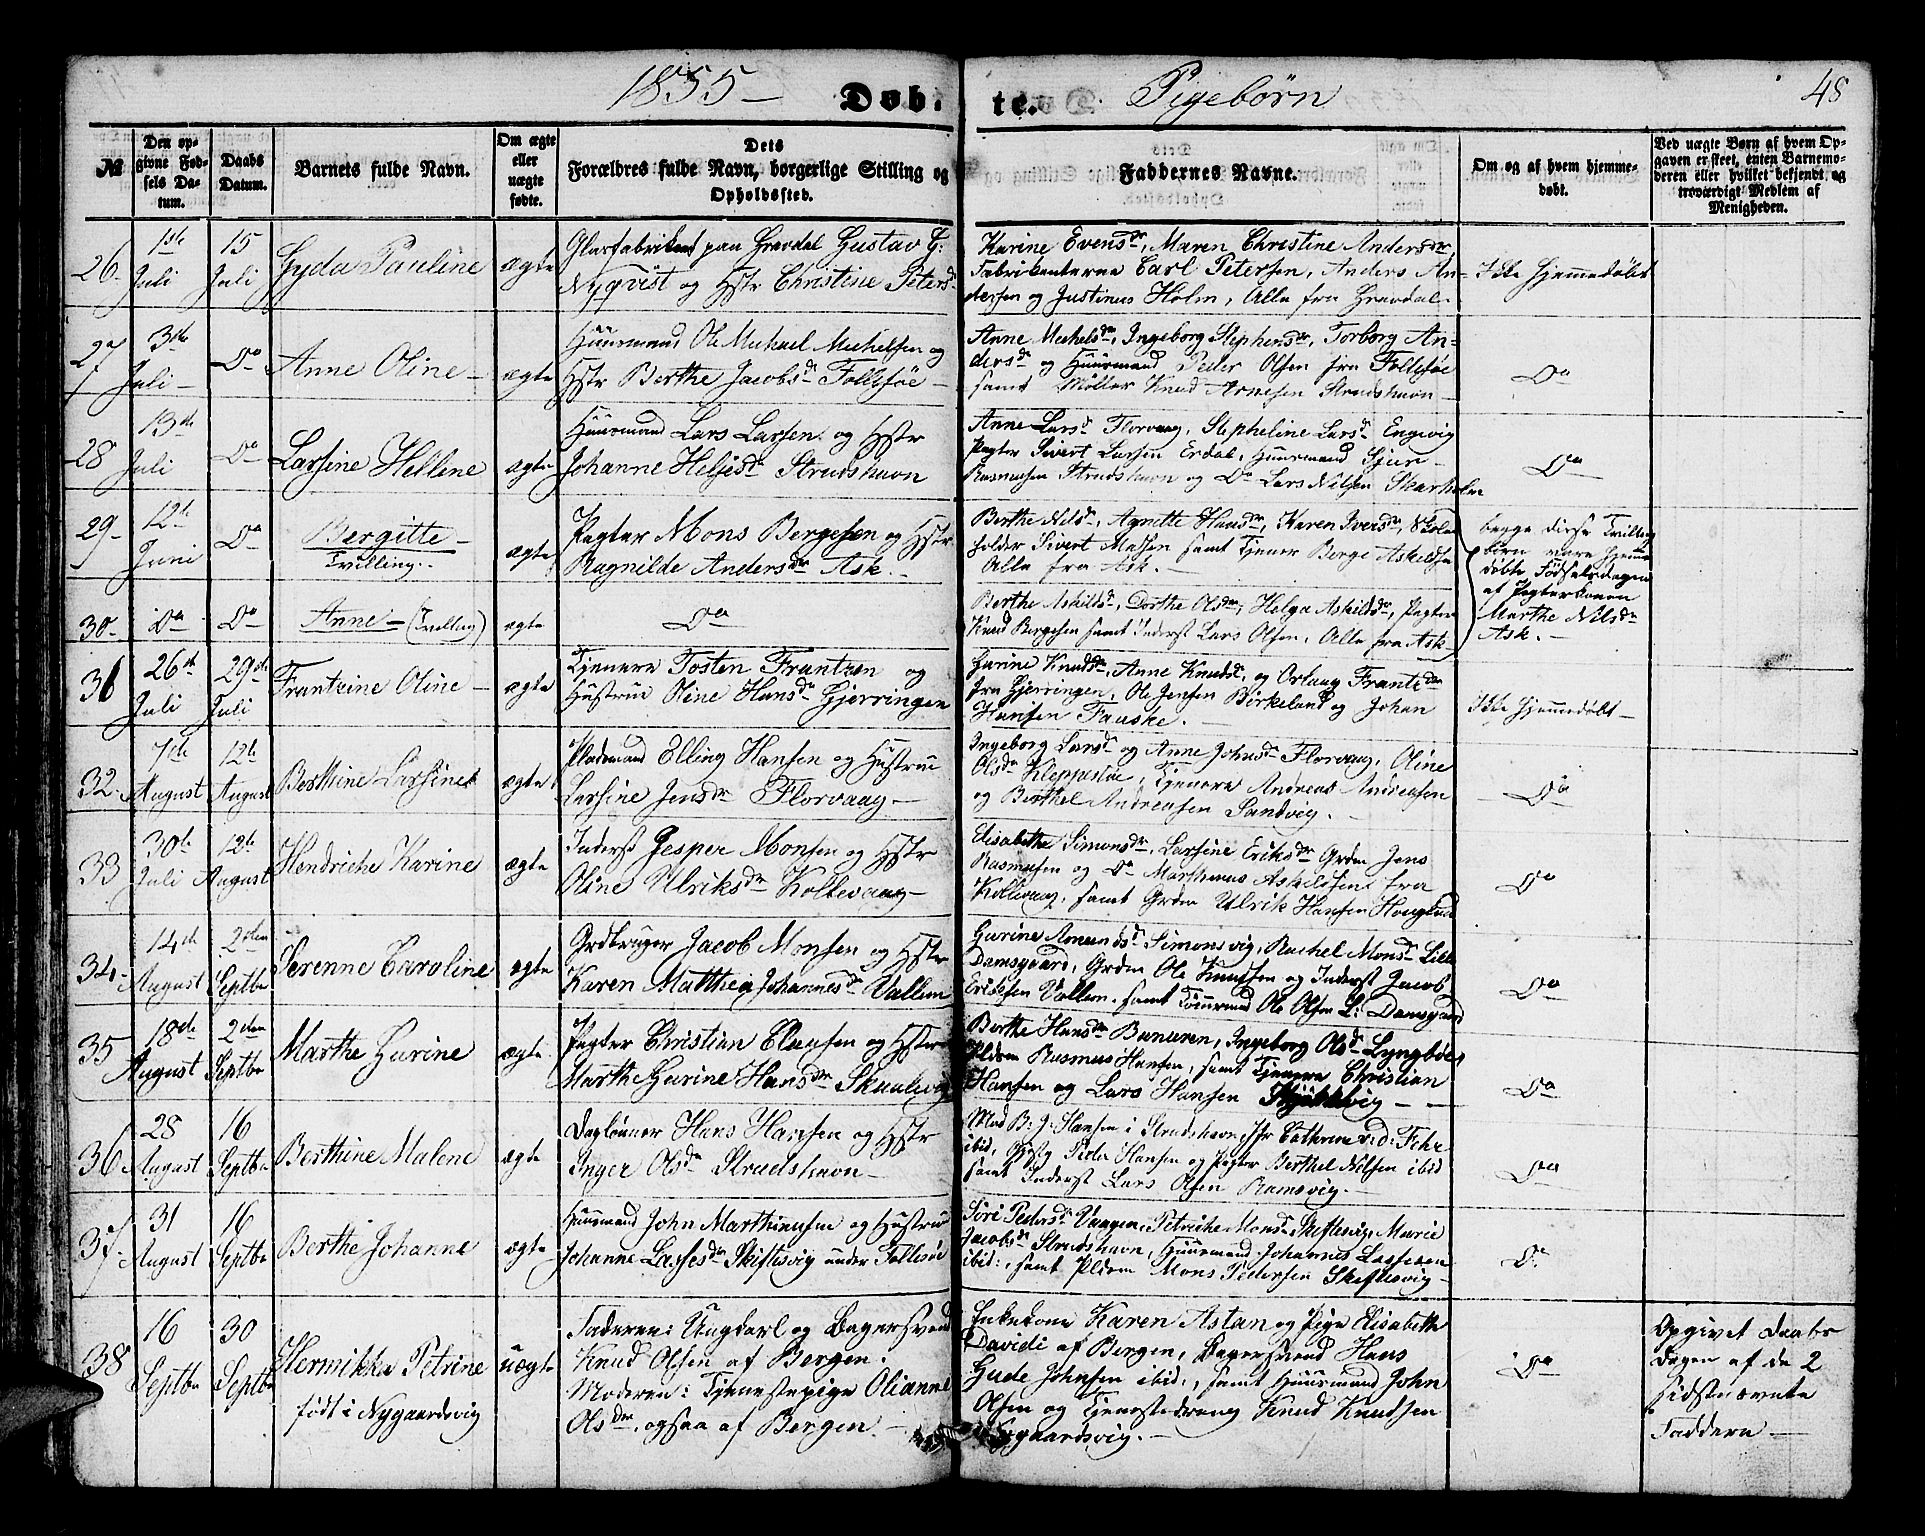 1855 — Døb. te. Pigebørn 48
№
Den opgivne Fødsels Datum.
Daabs Datum.
Barnets fulde Navn.
Om ægte eller uægte fødte.
Dets Forældres fulde Navn, borgerlige Stilling og Opholdssted.
Faddernes Navne.
Om og af hvem hjemmedøbt.
Ved uægte Børn af hvem Opgaven er skeet, enten Barnemoderen eller hvilket bekjendt og troværdigt Medlem af Menigheden.
26. 1ste Juli 15 Juli Gyda Pauline ægte
Glasfabrikant paa Gravdal Gustav G:
Nyqvist og Hstr Christine Petersdr
Karine Evensdr, Maren Christine Andersdr,
Fabrikanterne Carl Petersen, Anders An-
dersen og Justinus Holm, Alle fra Gravdal.
Ikke hjemmedøbt
27 3die Juli Do Anne Oline ægte
Huusmand Ole Michael Michelsen og
Hstr Berthe Jacobsdr Follesøe
Anne Michelsdr, Ingeborg Stephensdr, Torborg An-
dersdr og Huusmand Peder Olsen fra Follesøe
samt Møller Knud Arnesen Strudshavn
Do
28 13de Juli Do Larsine Hellene ægte
Huusmand Lars Larsen og Hstr
Johanne Heljesdr Strudshavn
Anne Larsdr Florvaag, Stepheline Larsdr Engevig
Pagter Sivert Larsen Erdal, Huusmand Sjur
Rasmusen Strudshavn og Do Lars Nilsen Skarholm
Do
29. 12te Juni Do Bergitte Tvilling. ægte
Pagter Mons Bergesen og Hstr
Ragnilde Andersdr Ask.
Berthe Nilsdr, Agnette Hansdr, Karen Iversdr, Skole-
holder Sivert Madsen samt Tjener Berge Askildsen
Alle fra Ask.
begge disse Tvilling
børn vare hjemme
døbte Fødselsdagen
af Pagterkonen
Marthe Nilsdr
Ask.
30. Do Do Anne (Tvilling) ægte Do
Berthe Askildsdr, Dorthe Olsdr, Helga Askildsdr, Pagter
Knud Bergesen samt Inderst Lars Olsen, Alle fra Ask
31 26de Juli 29de Juli Frantzine Oline ægte
Tjenere Tosten Frantzen og
Hustrue Oline Hansdr Gjerringen
Gurine Knudsdr, Anne Knudsdr, og Orlaug Frantzdr
fra Gjerringen, Ole Jensen Birkeland og Johan
Hansen Fauske.
Ikke hjemmedøbt
32. 7de August 12te August Berthine Larsine ægte
Pladsmand Elling Hansen og Hustrue
Larsine Jensdr Florvaag
Ingeborg Larsdr og Anne Johnsdr Florvaag, Oline
Olsdr Kleppestøe, Tjenere Andreas Andreasen
og Berthel Andreasen Sandvig.
Do
33 30te Juli 12te August Hendriche Karine ægte
Inderst Jesper Monsen og Hstr
Oline Ulriksdr Kollevaag
Elisabethe Simonsdr, Larsine Eriksdr Grdm Jens
Rasmusen og Do Marthinus Askildsen fra
Kollevaag, samt Grdm Ulrik Hansen Hougland
Do
34. 14de August 2den Septbr Serenne Caroline ægte
Grdbruger Jacob Monsen og Hstr
Karen Matthea Johannesdr Vallem
Gurine Amundsdr Simonsvig, Rachel Monsdr Lille
Damsgaard, Grdm Ole Knudsen og Inderst Jacob
Ericksen Vallem, samt Tømrmand Ole Olsen L: Damsgaard
Do
35 18de August 2den Septbr Marthe Gurine ægte
Pagter Christian Clausen og Hstr
Marthe Gurine Hansdr Skaalevig
Berthe Hansdr Buneren, Ingeborg Olsdr Lyngbøe
Pldm Rasmus Hansen, samt Tjenere Christian
Hansen og Lars Hansen
Do
36 28 August 16 Septbr Berthine Malene ægte
Daglønner Hans Hansen og Hstr
Inger Olsdr Strudshavn
Mad B: J: Hansen i Strudshavn, Jfr Cathrine v:d: Fehr
ibid, Gjestg Peder Hansen og Pagter Berthel Nilsen ibid
samt Inderst Lars Olsen Ramsvig.
Do
37. 31 August 16 Septbr Berthe Johanne ægte
Huusmand John Marthinusen og Hustrue
Johanne Lassesdr Skiftesvig under Follesøe
Siri Pedersdr Vaagen, Petriche Monsdr Skiftesvig, Marie
Jacobsdr Strudshavn, Huusmand Johannes Lassesen
ibid:, samt Pldm Mons Pedersen Skiftesvig
Do
38 16 Septbr 30 Septbr Hermikka Petrine
født i Nygaardsvig uægte
Faderen: Ungkarl og Bagersvend
Knud Olsen af Bergen.
Moderen: Tjenestepige Olianne
Olsdr, ogsaa af Bergen.
Enkekone Karen Astan og Pige Elisabethe
Davidi af Bergen, Bagersvend Hans
Gude Johnsen ibid:, samt Huusmand John
Olsen og Tjenestedreng Knud Knudsen
Nygaardsvig.
Do
Opgivet Daabs
dagen af de 2
sidstnævnte
Faddere